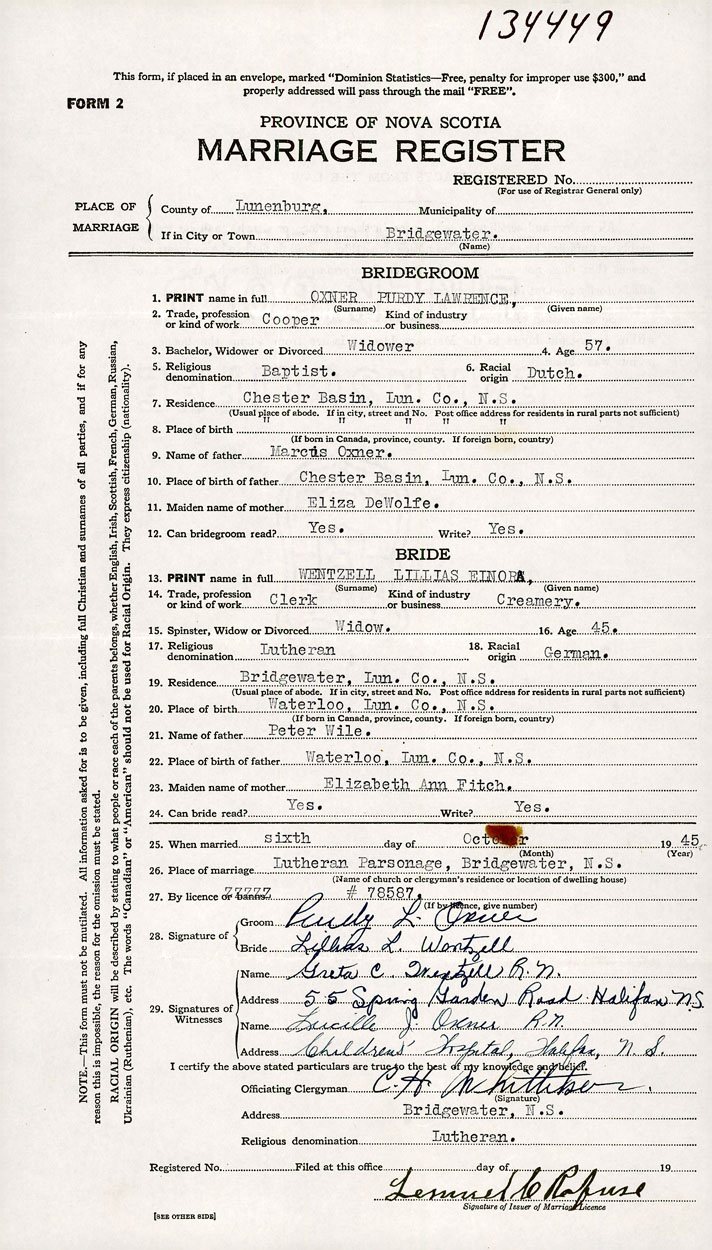 134449
This form, if placed in an envelope, marked "Dominion Statistics—Free, penalty for improper use $300," and
properly addressed will pass through the mail "FREE".
FORM 2
PROVINCE OF NOVA SCOTIA
MARRIAGE REGISTER
REGISTERED No.
(For use of Registrar General only)
PLACE OF MARRIAGE
County of Lunenburg, Municipality of
If in City or Town Bridgewater.
(Name)
BRIDEGROOM
1. PRINT name in full OXNER PURDY LAWRENCE,
(Surname) (Given name)
2. Trade, profession or kind of work Cooper Kind of industry or business
3. Bachelor, Widower or Divorced Widower 4. Age 57.
5. Religious denomination Baptist. 6. Racial origin Dutch.
7. Residence Chester Basin, Lun. Co., N.S.
(Usual place of abode. If in city, street and No. Post office address for residents in rural parts not sufficient)
8. Place of birth " " " " "
(If born in Canada, province, county. If foreign born, country)
9. Name of father Marcus Oxner.
10. Place of birth of father Chester Basin, Lun. Co., N.S.
11. Maiden name of mother Eliza DeWolfe.
12. Can bridegroom read? Yes. Write? Yes.
BRIDE
13. PRINT name in full WENTZELL LILLIAS EINORA,
(Surname) (Given name)
14. Trade, profession or kind of work Clerk Kind of industry or business Creamery.
15. Spinster, Widow or Divorced Widow. 16. Age 45.
17. Religious denomination Lutheran 18. Racial origin German.
19. Residence Bridgewater, Lun. Co., N.S.
(Usual place of abode. If in city, street and No. Post office address for residents in rural parts not sufficient)
20. Place of birth Waterloo, Lun. Co., N.S.
(If born in Canada, province, county. If foreign born, country)
21. Name of father Peter Wile.
22. Place of birth of father Waterloo, Lun. Co., N.S.
23. Maiden name of mother Elizabeth Ann Fitch.
24. Can bride read? Yes. Write? Yes.
25. When married sixth day of October 19 45
(Month) (Year)
26. Place of marriage Lutheran Parsonage, Bridgewater, N.S.
(Name of church or clergyman's residence or location of dwelling house)
27. By licence or banns ZZZZZ # 78587,
(If by licence, give number)
28. Signature of
Groom Purdy L. Oxner
Bride Lillias L. Wentzell
29. Signatures of Witnesses
Name Greta C. Wentzell R.N.
Address 55 Spring Garden Road Halifax N.S.
Name Lucille J. Oxner R.N.
Address Childrens' Hospital, Halifax, N.S.
I certify the above stated particulars are true to the best of my knowledge and belief.
Officiating Clergyman C. H. Whitteker.
(Signature)
Address Bridgewater, N.S.
Religious denomination Lutheran.
Registered No. Filed at this office day of 19
Lemuel C Rafuse
Signature of Issuer of Marriage Licence
[SEE OTHER SIDE]
NOTE.—This form must not be mutilated. All information asked for is to be given, including full Christian and surnames of all parties, and if for any
reason this is impossible, the reason for the omission must be stated.
RACIAL ORIGIN will be described by stating to what people or race each of the parents belongs, whether English, Irish, Scottish, French, German, Russian,
Ukrainian (Ruthenian), etc. The words "Canadian" or "American" should not be used for Racial Origin. They express citizenship (nationality).